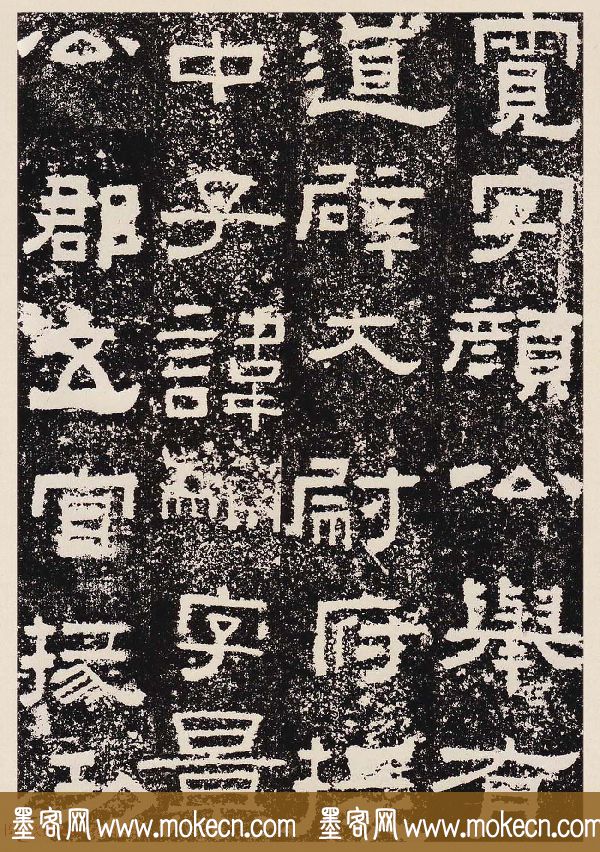 寬字顏公舉有
道辟大尉府掾
中子諱字景
公郡五官掾功
墨客网 www.mokecn.com 墨客网 www.mokecn.com